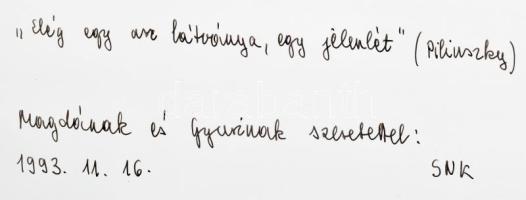 „Elég egy arc látványa, egy jelenlét" (Pilinszky)
Magdának és Gyurinak szeretettel:
1993. 11. 16. SNK